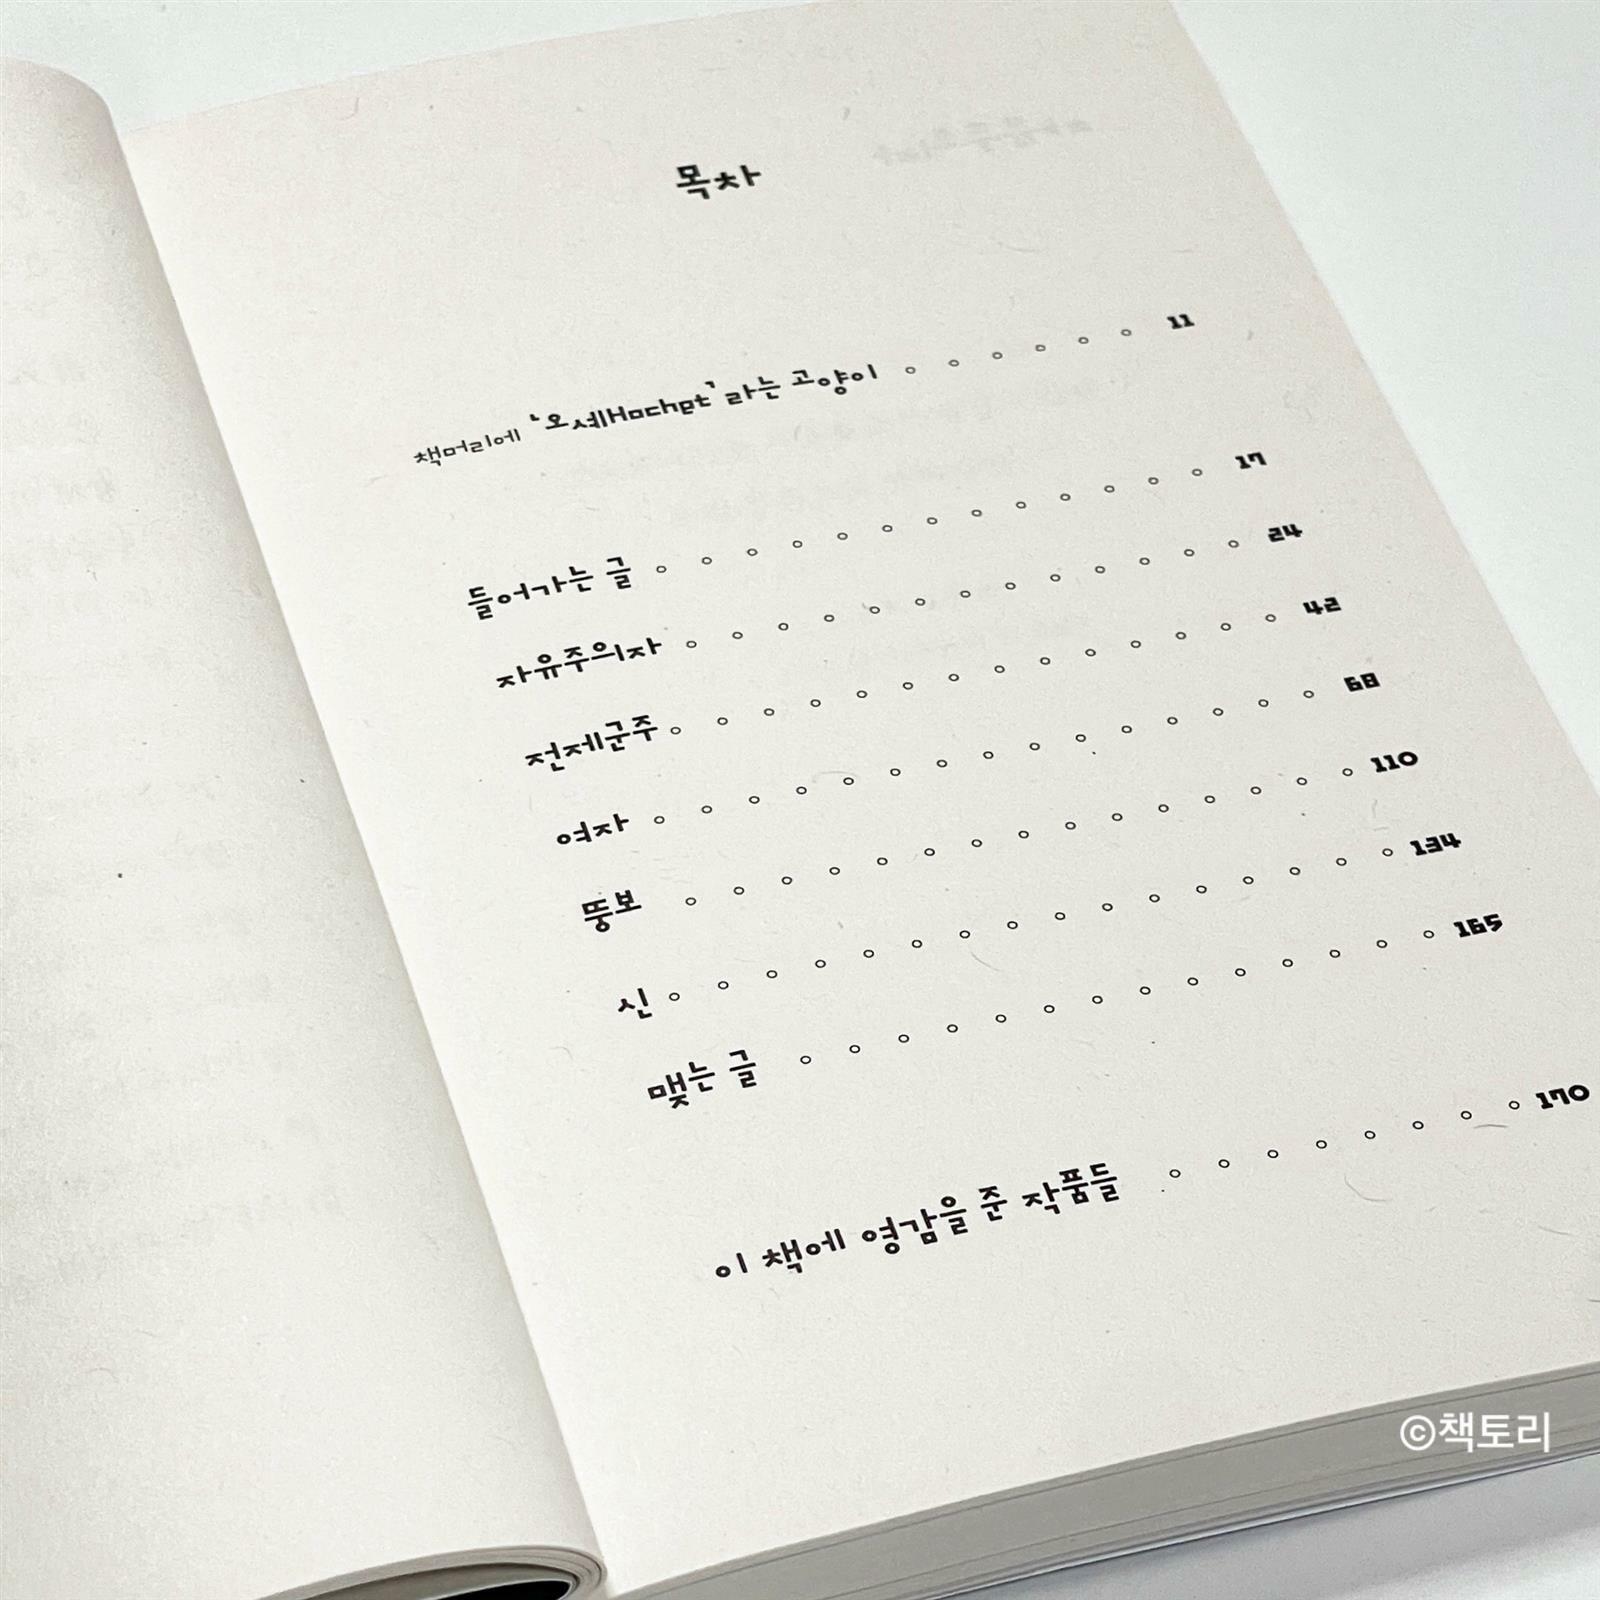 목차
책머리에 '오셰Hochet'라는 고양이 11
들어가는 글 17
자유주의자 24
전제군주 42
여자 68
뚱보 110
신 134
맺는 글 165
이 책에 영감을 준 작품들 170
©책토리